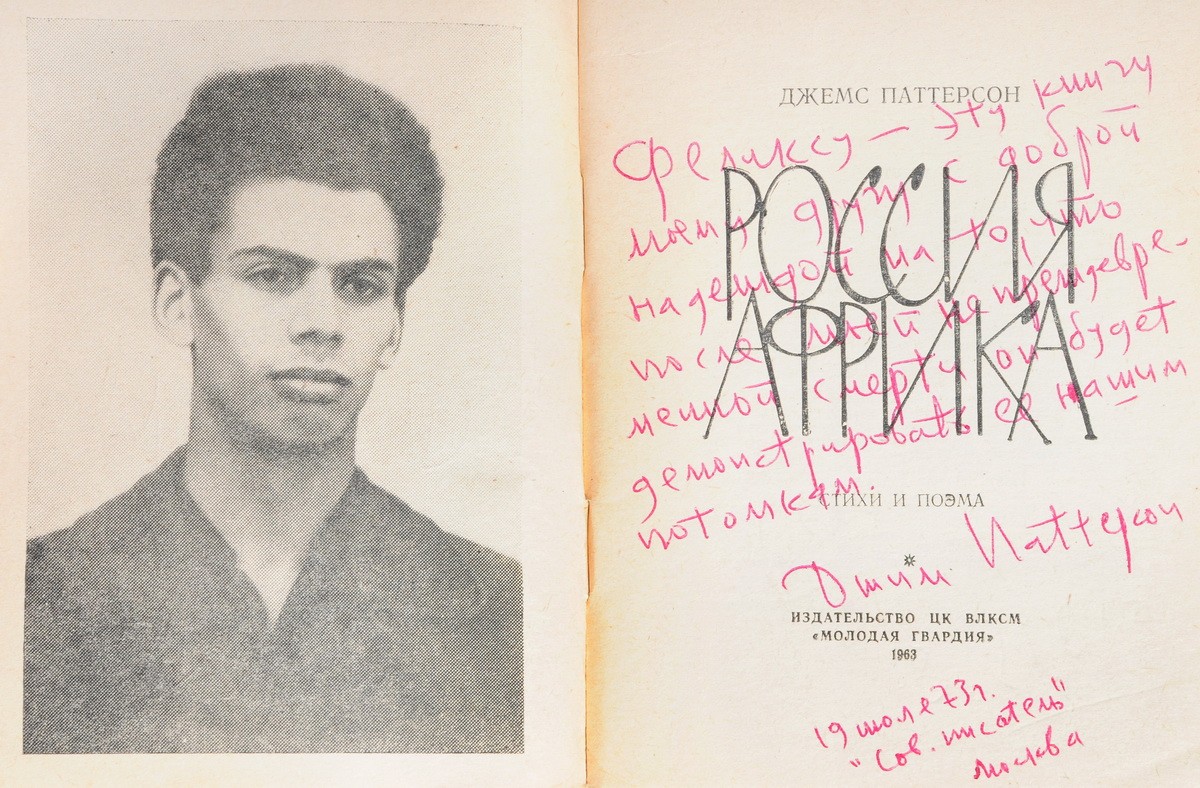 ДЖЕМС ПАТТЕРСОН
РОССИЯ
АФРИКА
СТИХИ И ПОЭМА
Феликсу — эту книгу
моему другу с доброй
надеждой на то, что
после моей не преждевре-
менной смерти он будет
демонстрировать ее нашим
потомкам.
Джим Паттерсон
ИЗДАТЕЛЬСТВО ЦК ВЛКСМ
«МОЛОДАЯ ГВАРДИЯ»
1963
19 июле 73 г.
"Сов. писатель"
Москва